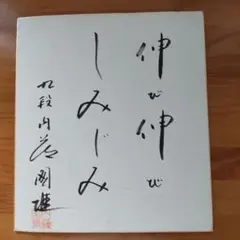 伸び伸び
しみじみ
九段内藤國雄